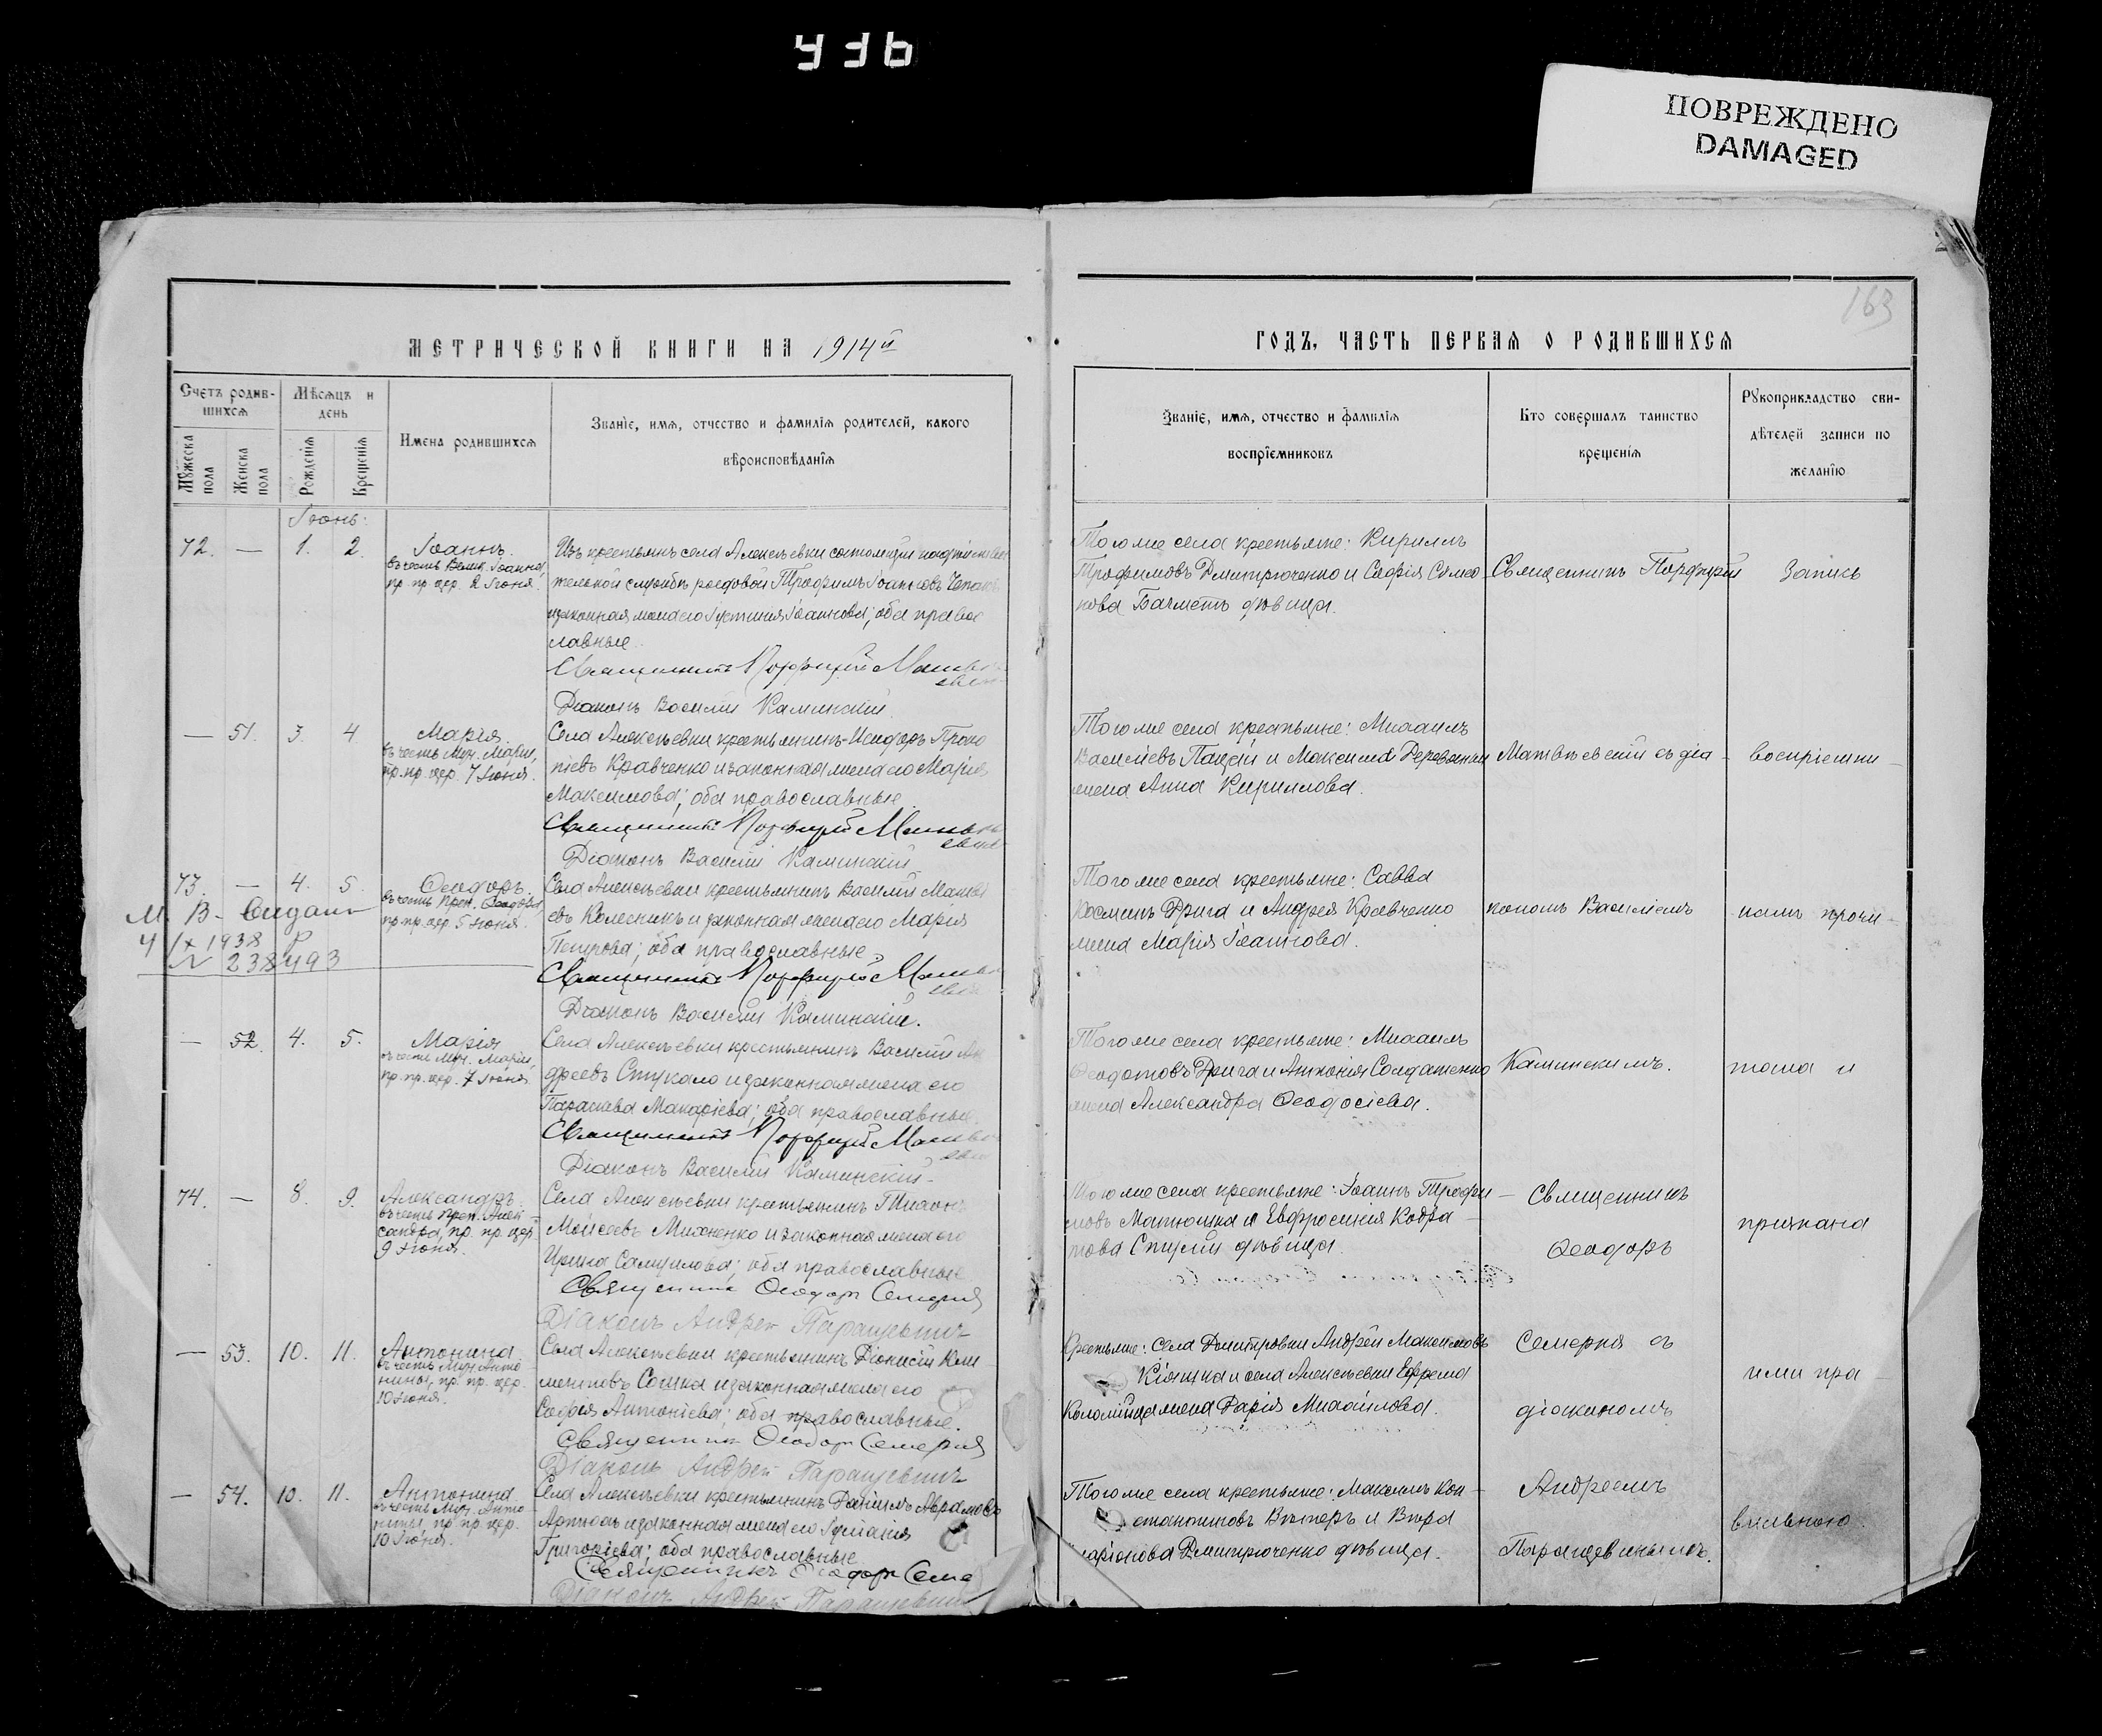 436
ПОВРЕЖДЕНО
DAMAGED
163
МЕТРИЧЕСКОЙ КНИГИ НА 1914й
Счетъ родив-
шихся
Мѣсяцъ и
день
Имена родившихся
Званіе, имя, отчество и фамилія родителей, какого
вѣроисповѣданія
Мужеска пола
Женска пола
Рожденія
Крещенія
Іюнь.
72. — 1. 2.
Іоаннъ.
въ честь Велик. Іоанна,
пр. пр. цер. 2 Іюня.
Изъ крестьянъ села Алексѣевки состоящій на
службѣ рядовой Трофимъ Іоанновъ
законная жена его Іустинія Іоаннова; оба правос
лавные.
Священникъ Порфирій Матвѣ
евскій
Діаконъ Василій Каминскій
— 51. 3. 4
Марія.
въ честь Муч. Маріи,
пр. пр. цер. 7 Іюня.
Села Алексѣевки крестьянинъ Исидоръ Проко
піевъ Кравченко и законная жена его Марія
Максимова; оба православные.
Священникъ Порфирій Матвѣ
евскій
Діаконъ Василій Каминскій
73. — 4. 5.
Ѳеодоръ.
въ честь Преп. Ѳеодора,
пр. пр. цер. 5 Іюня.
Села Алексѣевки крестьянинъ Василій Матвѣ
евъ Колесникъ и законная жена его Марія
Петрова; оба православные.
Священникъ Порфирій Матвѣ
евскій
Діаконъ Василій Каминскій.
М. В. Видано
4/IX 1938 р
N 238493
— 52. 4. 5.
Марія
въ честь Муч. Маріи,
пр. пр. цер. 7 Іюня.
Села Алексѣевки крестьянинъ Василій Ан
дреевъ Стукало и законная жена его
Параскева Макаріева; оба православные.
Священникъ Порфирій Матвѣ
евскій
Діаконъ Василій Каминскій
74. — 8. 9.
Александръ.
въ честь Преп. Алек
сандра, пр. пр. цер.
9 Іюня.
Села Алексѣевки крестьянинъ Тихонъ
Моисеевъ Михненко и законная жена его
Ирина Самуилова; оба православные
Священникъ Ѳеодоръ Семерня
Діаконъ Андрей Паращевинъ
— 53. 10. 11.
Антонина.
въ честь Муч. Анто
нины, пр. пр. цер.
10 Іюня.
Села Алексѣевки крестьянинъ Діонисій Кли
ментовъ Сошка и законная жена его
Софія Антоніева; оба православные.
Священникъ Ѳеодоръ Семерня
Діаконъ Андрей Паращевинъ
— 54. 10. 11.
Антонина
въ честь Муч. Анто
нины, пр. пр. цер.
10 Іюня.
Села Алексѣевки крестьянинъ Даніилъ Аврамовъ
Артюхъ и законная жена его Іуліанія
Григоріева; оба православные
Священникъ Ѳеодоръ Семе
Діаконъ Андрей Паращевинъ
ГОДЪ, ЧАСТЬ ПЕРВАЯ О РОДИВШИХСЯ
Званіе, имя, отчество и фамилія
воспріемниковъ
Кто совершалъ таинство
крещенія
Рукоприкладство сви-
дѣтелей записи по
желанію
Того же села крестьяне: Кириллъ
Трофимовъ Дмитрюченко и Софія Симео
нова Бачметъ дѣвица.
Того же села крестьяне: Михаилъ
Василіевъ Пацѣй и Максима Деревянки
жена Анна Кириллова.
Того же села крестьяне: Савва
Косминъ Дрига и Андрея Кравченко
жена Марія Іоаннова.
Того же села крестьяне: Михаилъ
Ѳеодотовъ Дрига и Антонія Солдатенко
жена Александра Ѳеодосіева.
Того же села крестьяне: Іоаннъ Трофи —
мовъ Матюшка и Евфросинія Кодра —
това Спицы дѣвица.
Крестьяне: села Дмитровки Андрей Максимовъ
Кіяшка и села Алексѣевки Ефрема
Коломійца жена Дарія Михаилова.
Того же села крестьяне: Максимъ Кон —
стантиновъ Вихтеръ и Вѣра
аріонова Дмитрюченко дѣвица.
Священникъ Порфирій
Матвѣевскій съ діа —
кономъ Василіемъ
Каминскимъ.
— Священникъ
Ѳеодоръ
Семерня съ
діакономъ
Андреемъ
Паращевинымъ.
Запись
воспріемни —
ками прочи —
тана и
признана
ими пра —
вильною.